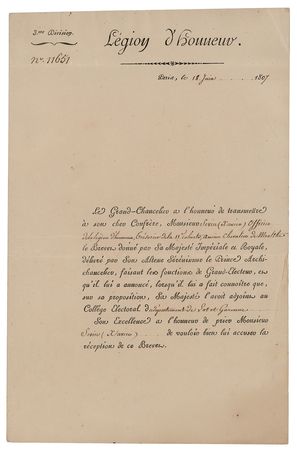 3.me Division.
Légion d'Honneur.
N.° 11651
Paris, le 18 Juin 1807
Le Grand-Chancelier a l'honneur de transmettre
à son cher Confrère, Monsieur (Xavier) Officier
de la légion d'honneur, Trésorier de la 11e Cohorte, ancien Chevalier de
le Brevet donné par Sa Majesté Impériale et Royale,
délivré par Son Altesse Sérénissime le Prince Archi-
chancelier, faisant les fonctions de Grand-Electeur, et
qu'il lui a annoncé, lorsqu'il lui a fait connaître que,
sur sa proposition, Sa Majesté l'avait adjoint au
Collége Electoral Du département de Lot et Garonne
Son Excellence a l'honneur de prier Monsieur
(Xavier) de vouloir bien lui accuser la
réception de ce Brevet.